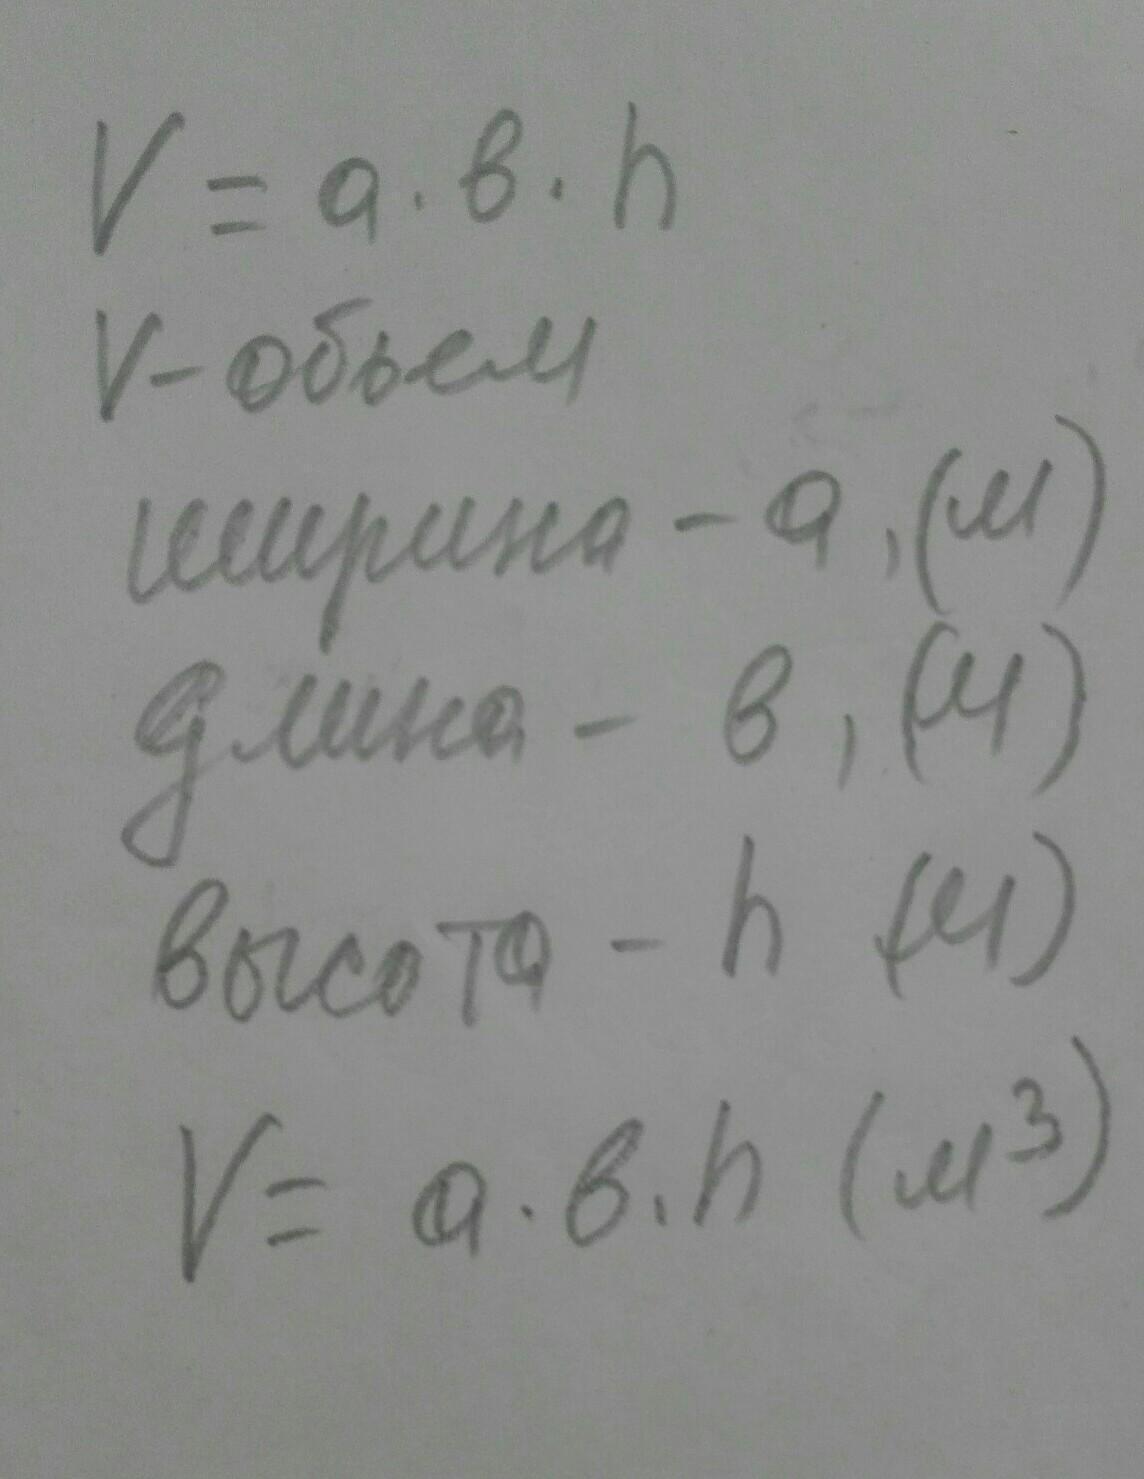 V = а · в · h
V - обьем
ширина - а, (м)
длина - в, (м)
высота - h (м)
V = а · в · h (м³)